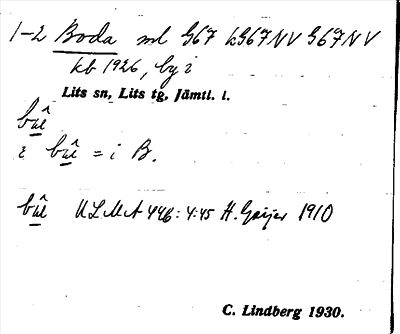 1-2 Boda ml G67 kG67NV G67NV
kb 1926, by i
Lits sn, Lits tg, Jämtl. l.
i = i B.
ULMA 446: 4:45 H. Geijer 1910
C. Lindberg 1930.